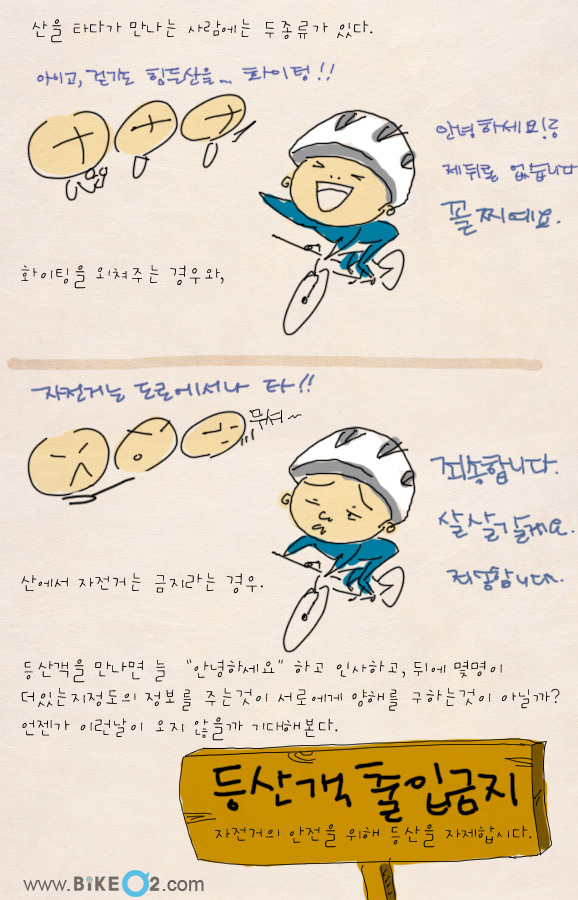 산을 타다가 만나는 사람에는 두종류가 있다.
아이고, 걷기도 힘든산을... 화이팅!!
안녕하세요!
제뒤로 없습니다
꼴찌예요.
화이팅을 외쳐주는 경우와,
자전거는 도로에서나 타!!
무셔~
죄송합니다.
살살갈게요.
죄송합니다.
산에서 자전거는 금지라는 경우.
등산객을 만나면 늘 "안녕하세요" 하고 인사하고, 뒤에 몇명이
더있는지정도의 정보를 주는것이 서로에게 양해를 구하는것이 아닐까?
언젠가 이런날이 오지 않을까 기대해본다.
등산객 출입금지
자전거의 안전을 위해 등산을 자제합시다.
www.BiKEO2.com